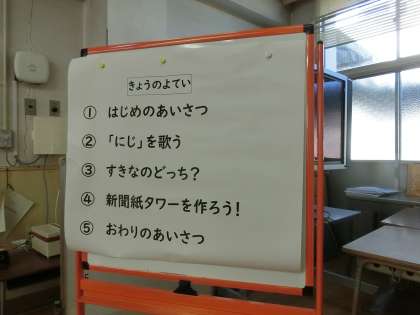 きょうのよてい
① はじめのあいさつ
② 「にじ」を歌う
③ すきなのどっち？
④ 新聞紙タワーを作ろう！
⑤ おわりのあいさつ